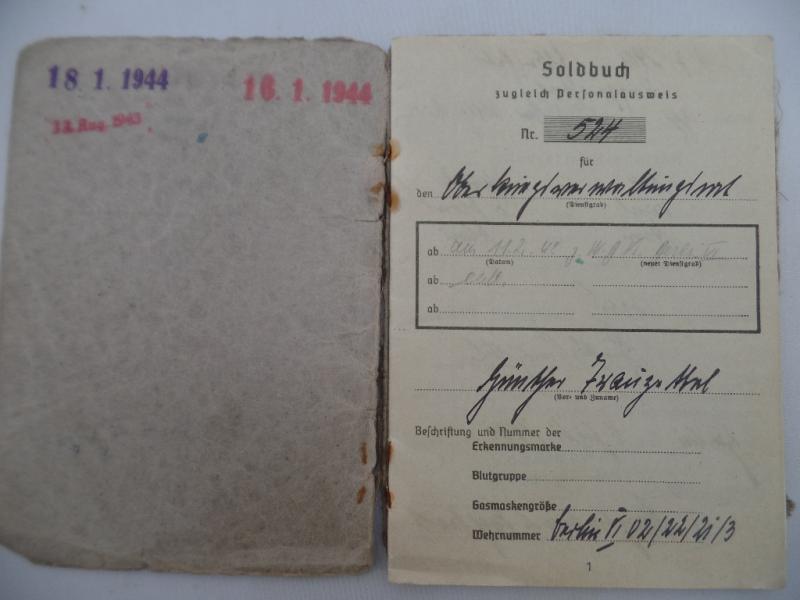 18 1. 1944
16. 1. 1944
13. Aug. 1943
Soldbuch
zugleich Personalausweis
Nr. 524
für
den Oberkriegsverwaltungsrat
(Dienstgrad)
ab
(Datum) (neuer Dienstgrad)
ab
ab
Günther
(Vor- und Zuname)
Beschriftung und Nummer der
Erkennungsmarke
Blutgruppe
Gasmaskengröße
Wehrnummer Berlin VI 02/22/21/3
1